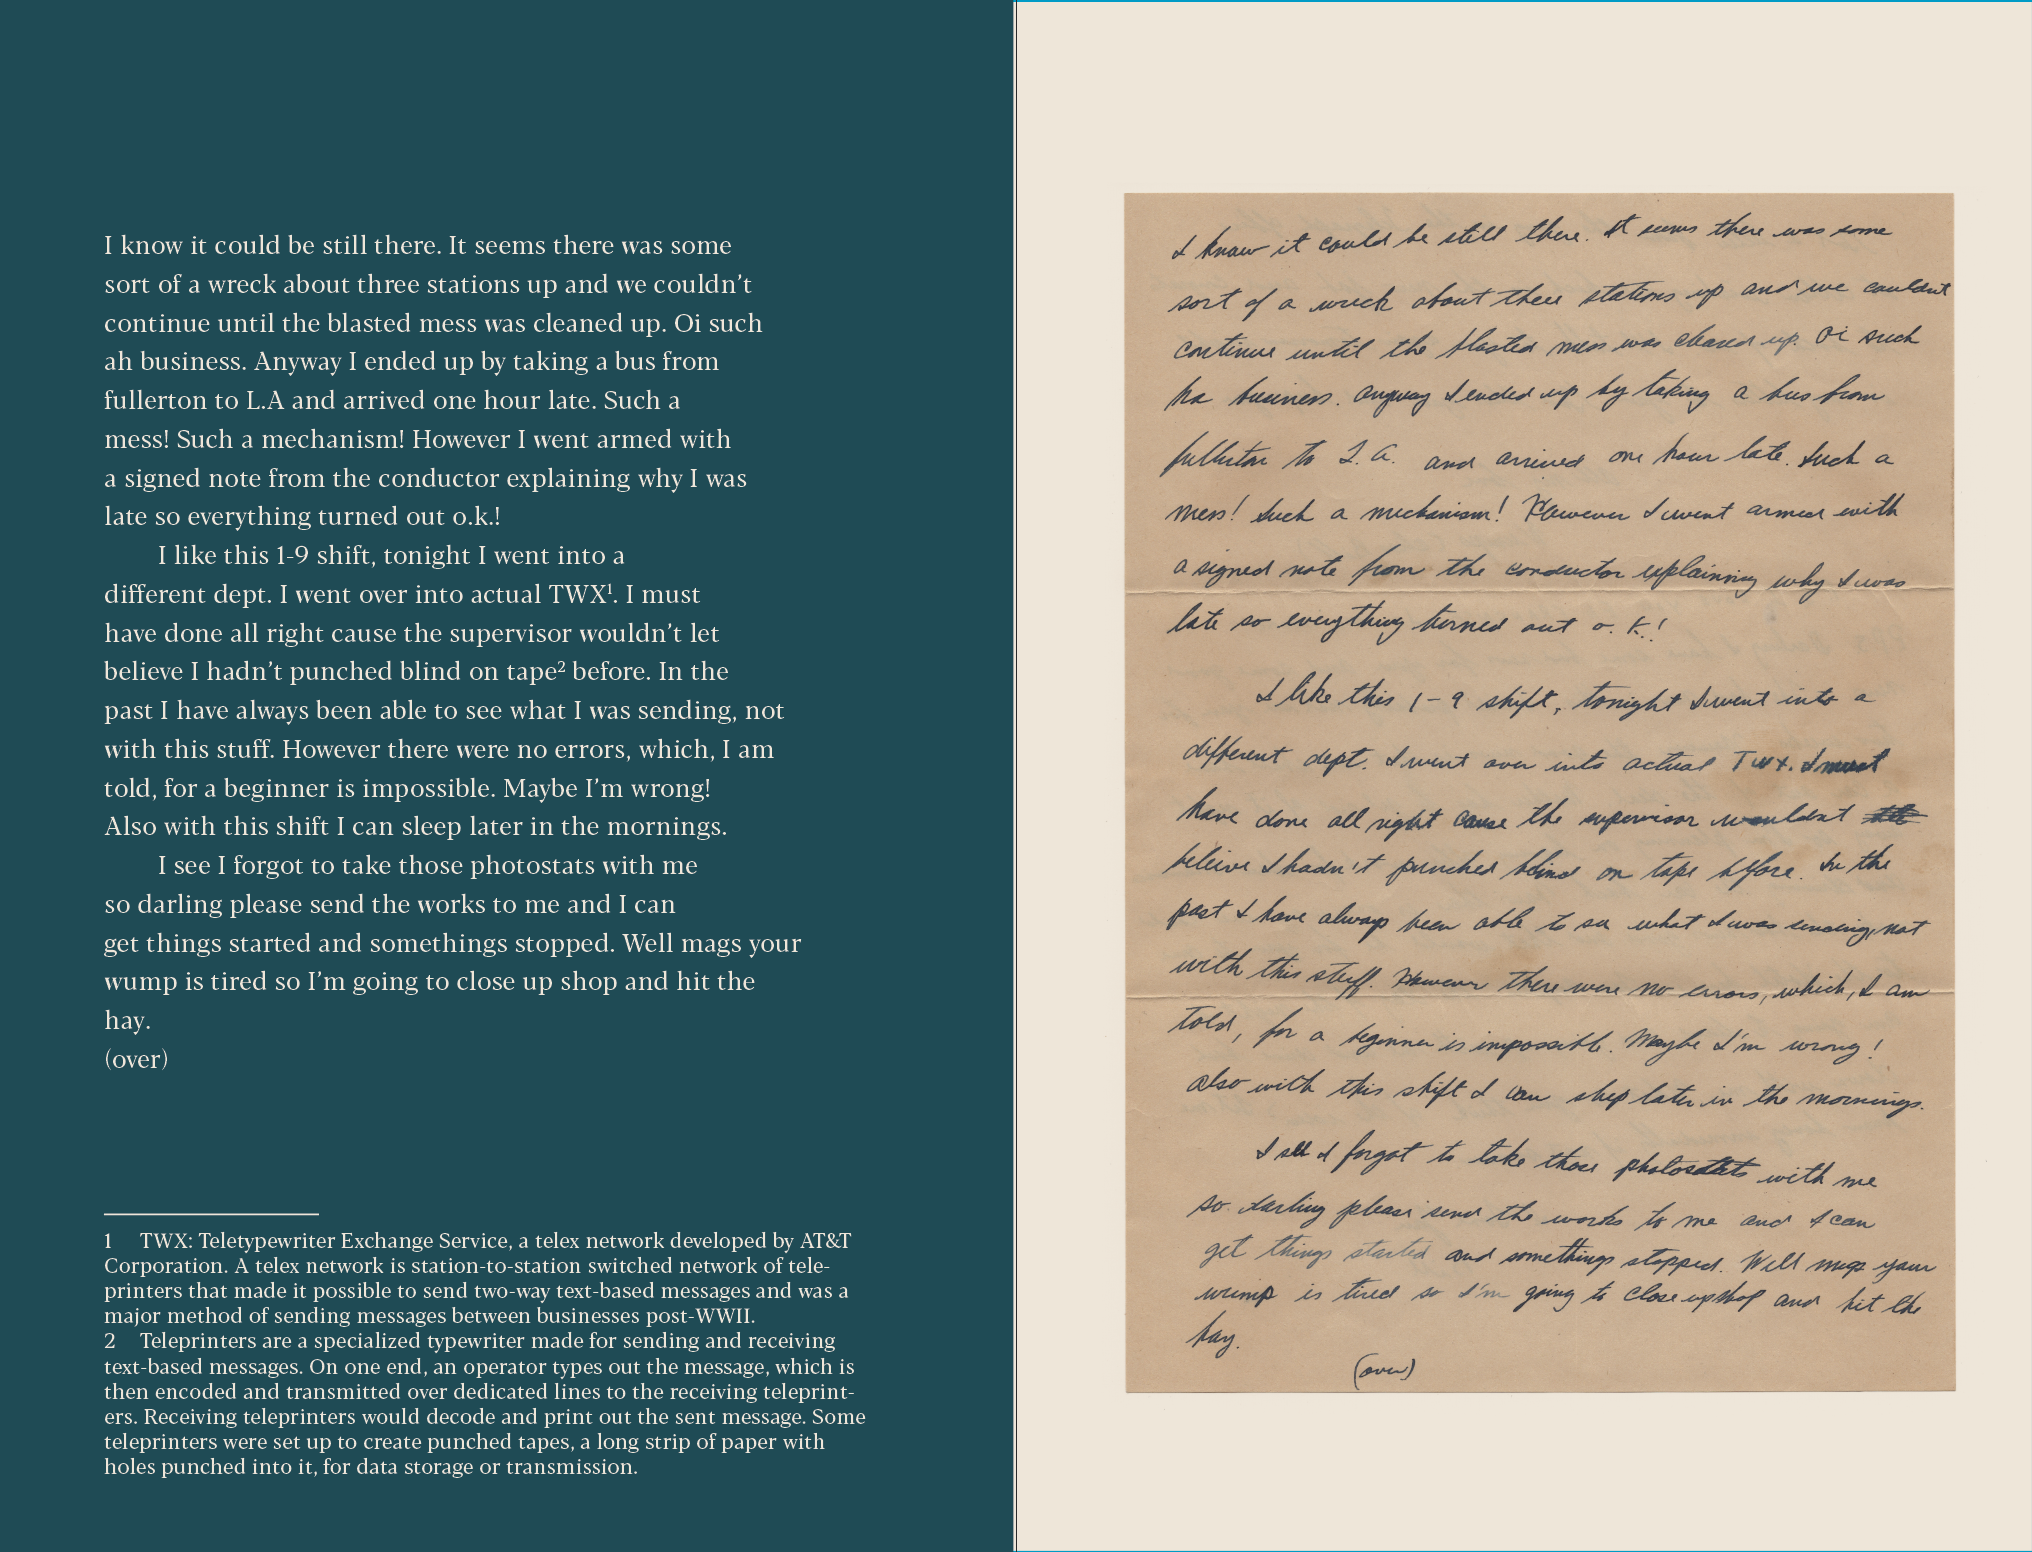 I know it could be still there. It seems there was some
sort of a wreck about three stations up and we couldn’t
continue until the blasted mess was cleaned up. Oi such
ah business. Anyway I ended up by taking a bus from
fullerton to L.A and arrived one hour late. Such a
mess! Such a mechanism! However I went armed with
a signed note from the conductor explaining why I was
late so everything turned out o.k.!
I like this 1-9 shift, tonight I went into a
different dept. I went over into actual TWX¹. I must
have done all right cause the supervisor wouldn’t let
believe I hadn’t punched blind on tape² before. In the
past I have always been able to see what I was sending, not
with this stuff. However there were no errors, which, I am
told, for a beginner is impossible. Maybe I’m wrong!
Also with this shift I can sleep later in the mornings.
I see I forgot to take those photostats with me
so darling please send the works to me and I can
get things started and somethings stopped. Well mags your
wump is tired so I’m going to close up shop and hit the
hay.
(over)
1 TWX: Teletypewriter Exchange Service, a telex network developed by AT&T
Corporation. A telex network is station-to-station switched network of tele-
printers that made it possible to send two-way text-based messages and was a
major method of sending messages between businesses post-WWII.
2 Teleprinters are a specialized typewriter made for sending and receiving
text-based messages. On one end, an operator types out the message, which is
then encoded and transmitted over dedicated lines to the receiving teleprint-
ers. Receiving teleprinters would decode and print out the sent message. Some
teleprinters were set up to create punched tapes, a long strip of paper with
holes punched into it, for data storage or transmission.
I know it could be still there. It seems there was some
sort of a wreck about three stations up and we couldnt
continue until the blasted mess was cleaned up. Oi such
ha business. Anyway I ended up by taking a bus from
fullerton to L.A. and arrived one hour late. Such a
mess! Such a mechanism! However I went armed with
a signed note from the conductor explaining why I was
late so everything turned out o.K.!
I like this 1-9 shift, tonight I went into a
different dept. I went over into actual TWX. I must
have done all right cause the supervisor wouldnt
beleive I hadn't punched blind on tape before. In the
past I have always been able to see what I was sending, not
with this stuff. However there were no errors, which, I am
told, for a beginner is impossible. Maybe I'm wrong!
also with this shift I can sleep later in the mornings.
I see I forgot to take those photostats with me
so darling please send the works to me and I can
get things started and somethings stopped. Well mags your
wump is tired so I'm going to close up shop and hit the
hay.
(over)